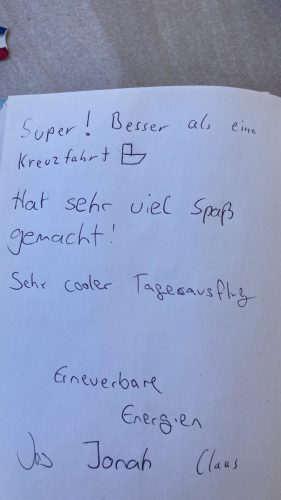 Super! Besser als eine
Kreuzfahrt
Hat sehr viel Spaß
gemacht!
Sehr cooler Tagesausflug
Erneuerbare
Energien
Jos Jonah Claas